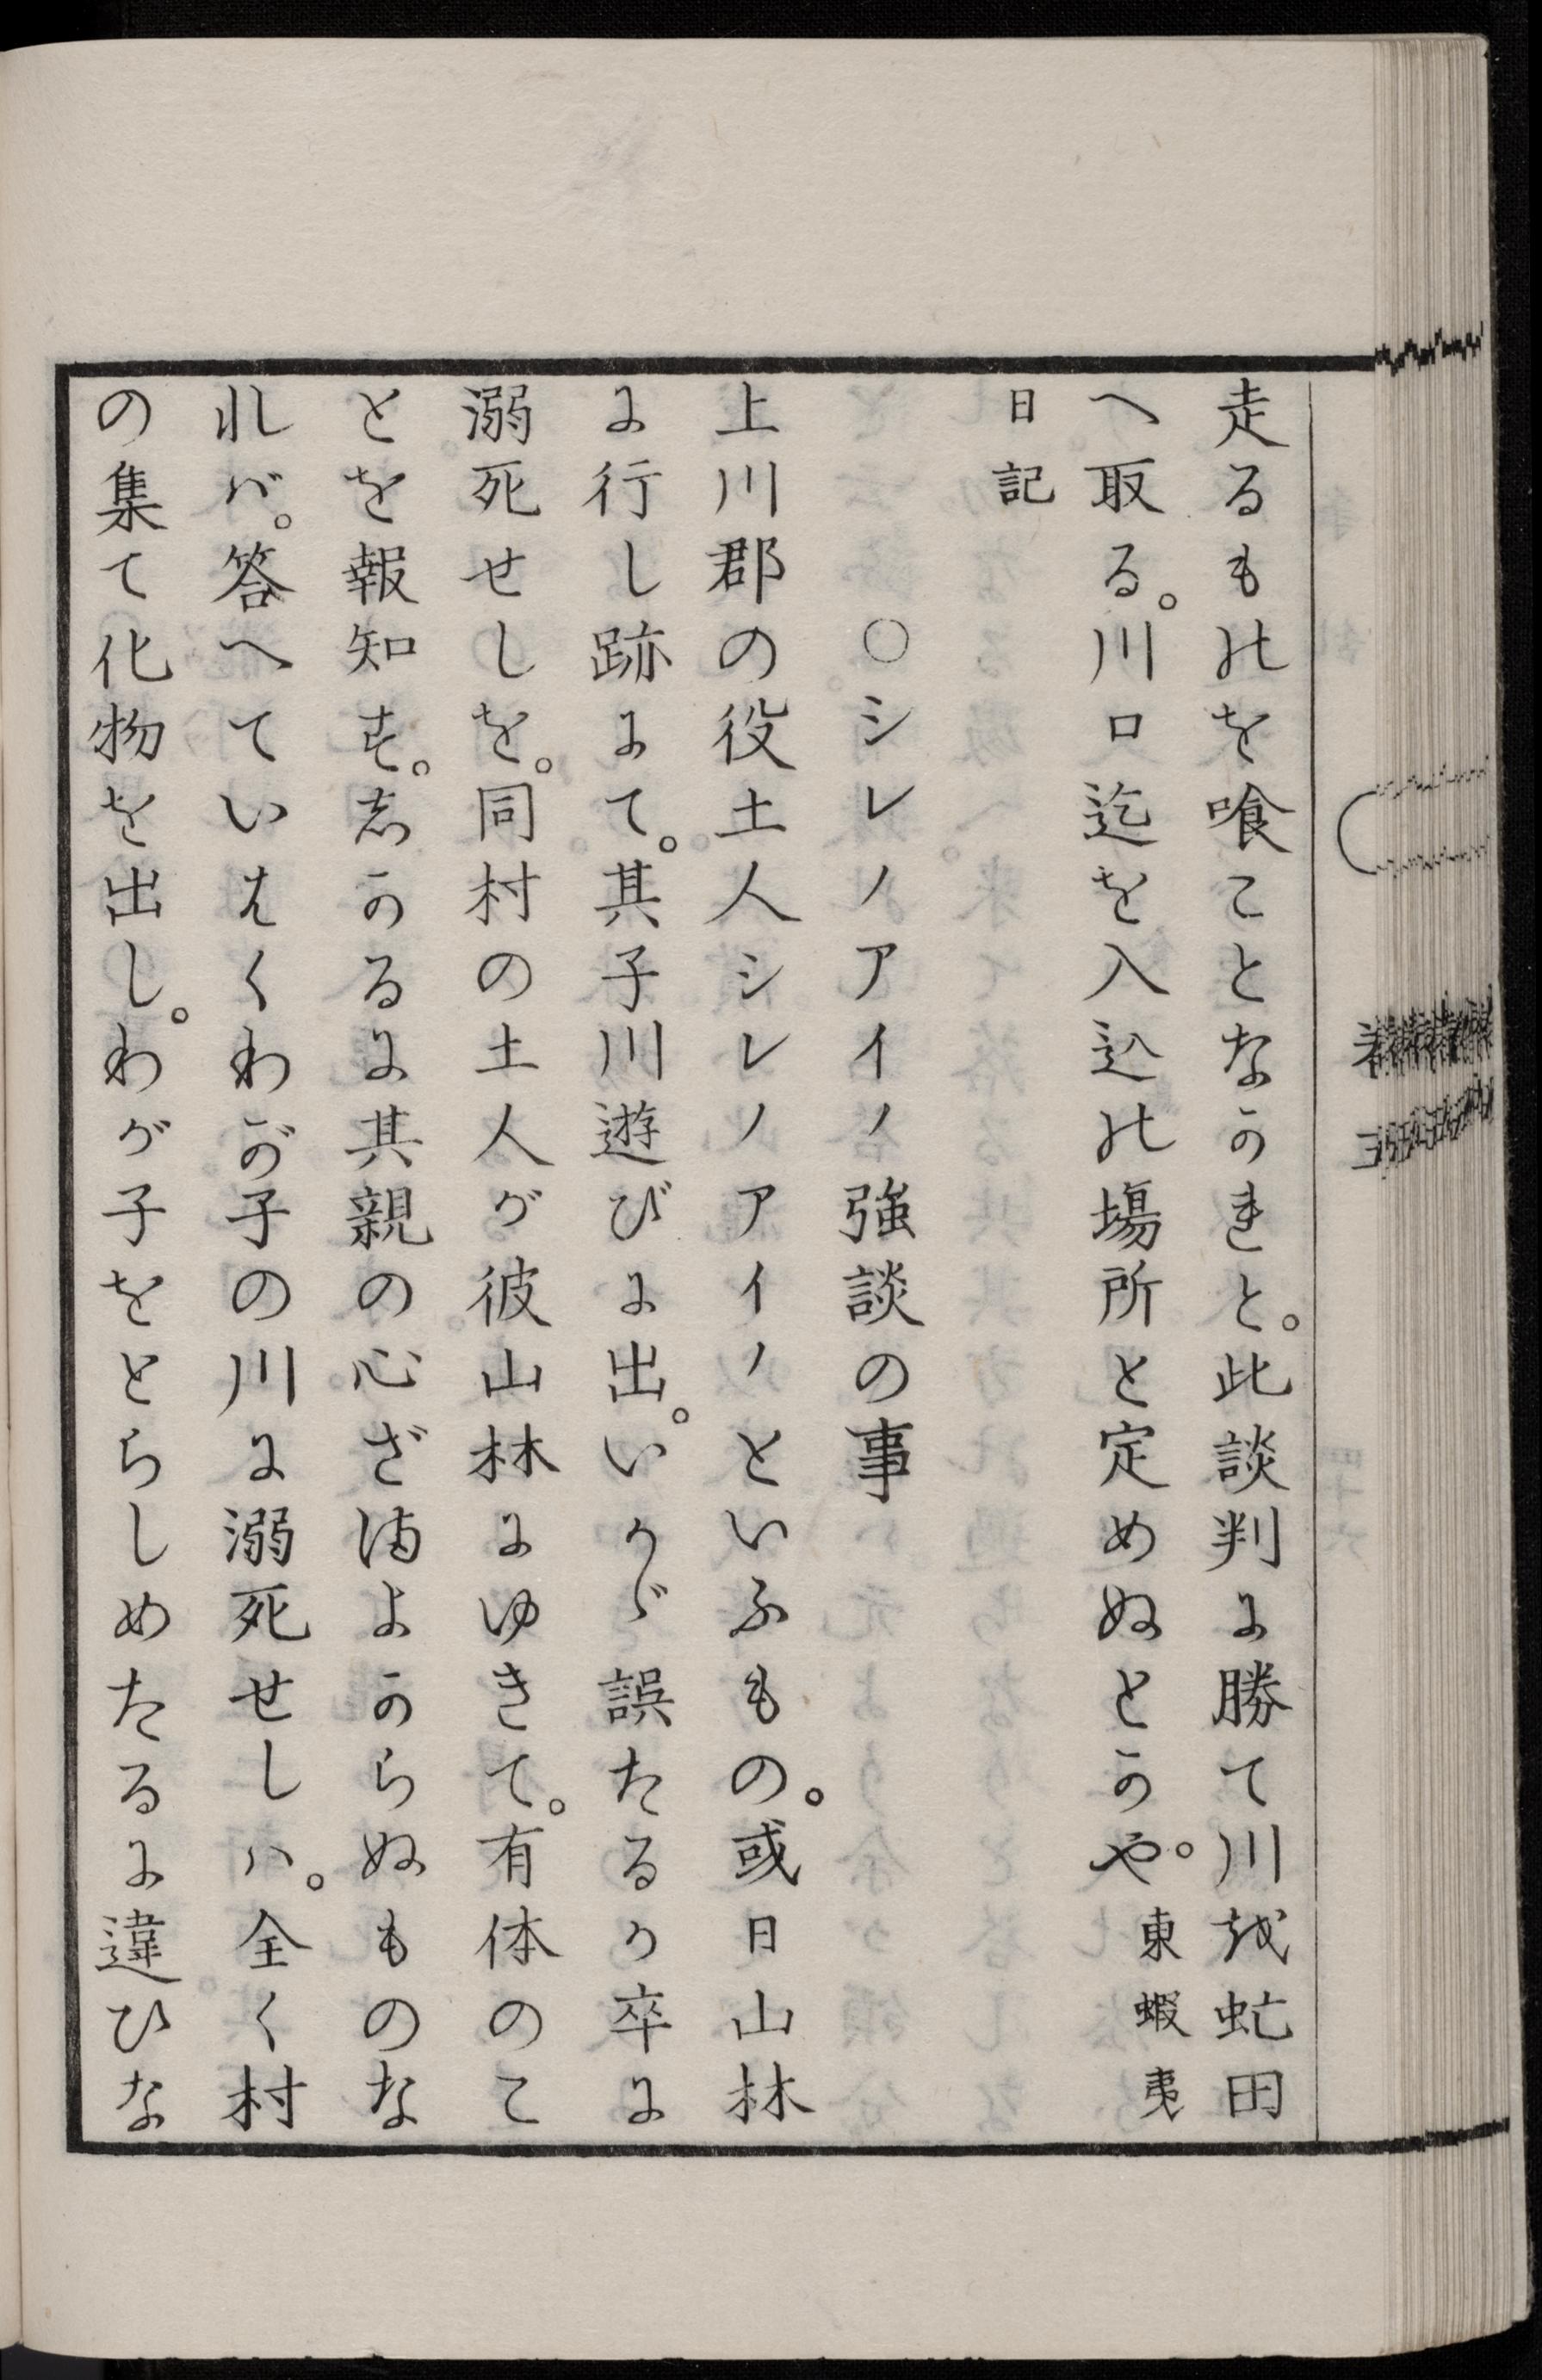 走るものを喰ことなかれと。此談判に勝て川越虻田
へ取る。川口迄を入込の場所と定めぬとかや。東蝦夷
日記
○シレノアイノ強談の事
上川郡の役土人シレノアイノといふもの。或日山林
に行し跡にて。其子川遊びに出。いかゞ誤たるか卒に
溺死せしを。同村の土人が彼山林にゆきて。有体のこ
とを報知す。志かるに其親の心ざまよからぬものな
れバ。答へていはくわが子の川に溺死せしハ。全く村
の集て化物を出し。わが子をとらしめたるに違ひな